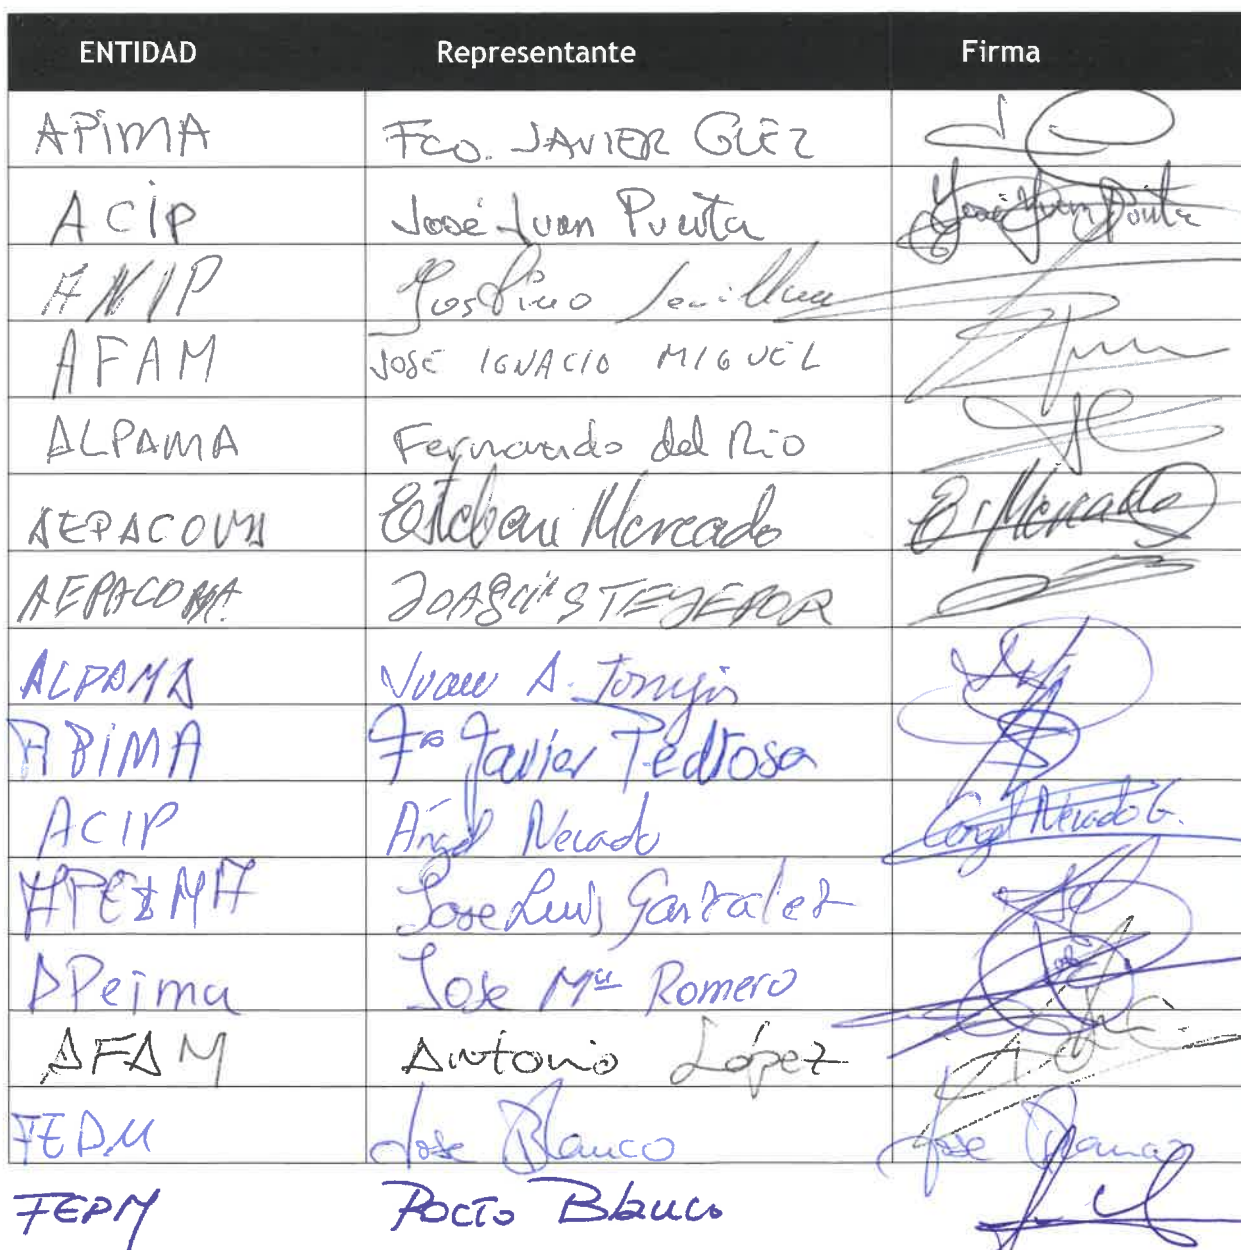 ENTIDAD Representante Firma
APIMA Fco. JAVIER GUEZ
ACIP José Juan Puerta José Juan Puerta
ANIP Justino Sevillano
AFAM JOSE IGNACIO MIGUEL
ALPAMA Fernando del Rio
AEPACOMA Esteban Mercado E. Mercado
AEPACOMA JOAQUIN S TEJEDOR
ALPAMA Juan A.
APIMA Fco Javier Pedrosa
ACIP Ángel Nevado Angel Nevado G.
APEIMA Jose Luis Gonzalez
APeima Jose Mª Romero
AFAM Antonio López
FEPM Jose Blanco Jose Blanco
FEPM Rocío Blanco